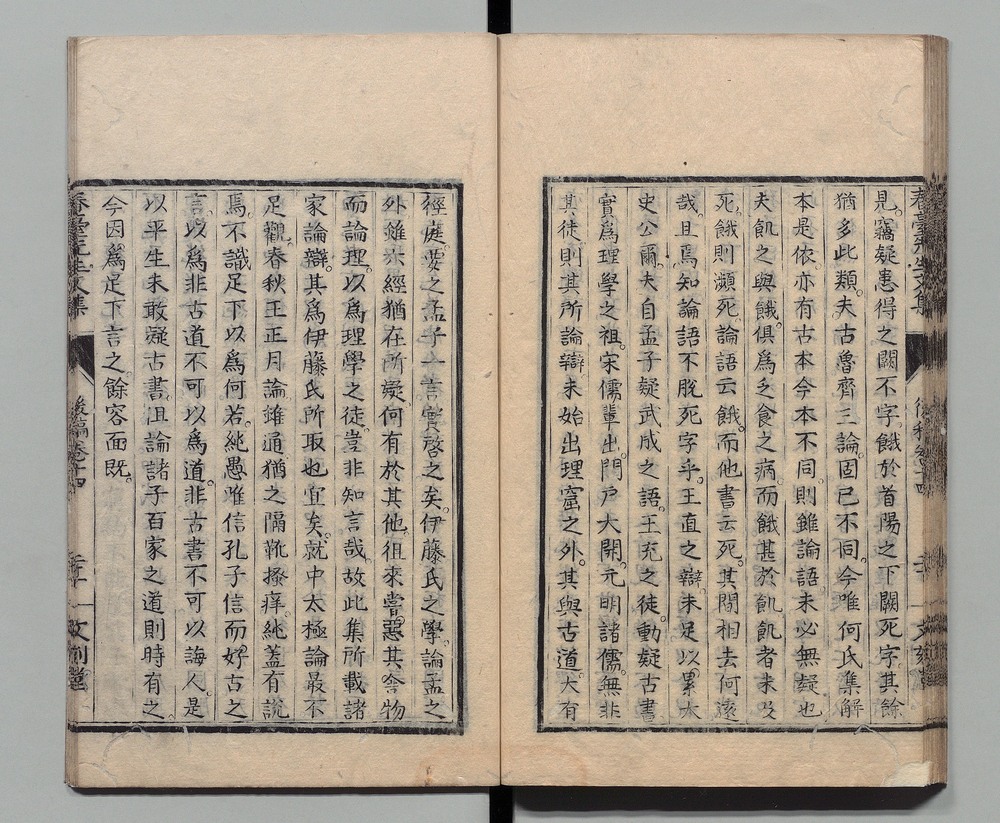 見。竊疑患得之闕不字。餓於首陽之下闕死字。其餘
猶多此類。夫古魯齊三論。固已不同。今唯何氏集解
本是依亦有古本今本不同則雖論語未必無疑也
夫飢之與餓。俱爲乏食之病。而餓甚於飢飢者未及
死。餓則瀕死。論語云餓。而他書云死。其間相去何遠
哉。且焉知論語不脫死字乎。王直之辯。未足以累太
史公爾。夫自孟子疑武成之語。王充之徒。動疑古書
實爲理學之祖。宋儒輩出。門戸大開。元明諸儒。無非
其徒。則其所論辯未始出理窟之外。其與古道。大有
徑庭。要之孟子一言實啓之矣。伊藤氏之學。論孟之
外。雖六經猶在所疑。何有於其他。徂來嘗惡其舍物
而論理。以爲理學之徒。豈非知言哉。故此集所載諸
家論辯。其爲伊藤氏所取也宜矣。就中太極論最不
足觀。春秋王正月論雖通猶之隔靴搔痒。純蓋有說
焉。不識足下以爲何若。純愚唯信孔子信而好古之
言。以爲非古道不可以爲道。非古書不可以誨人。是
以平生未敢疑古書。沮論諸子百家之道則時有之。
今因爲足下言之。餘容面既。
春臺先生文集
後稿卷十四